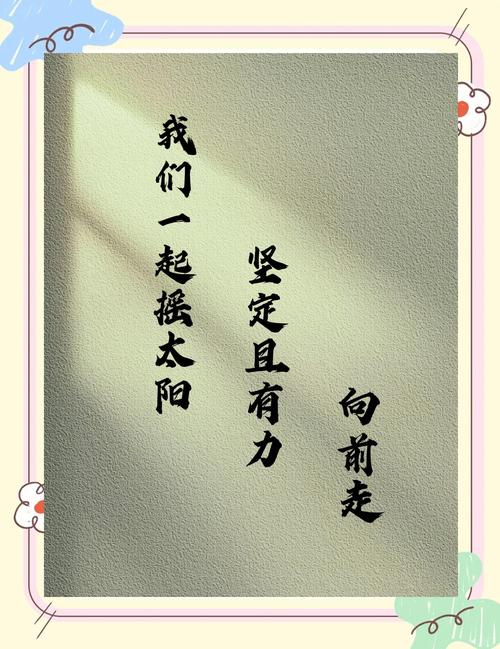 我们一起摇太阳
坚定且有力
向前走